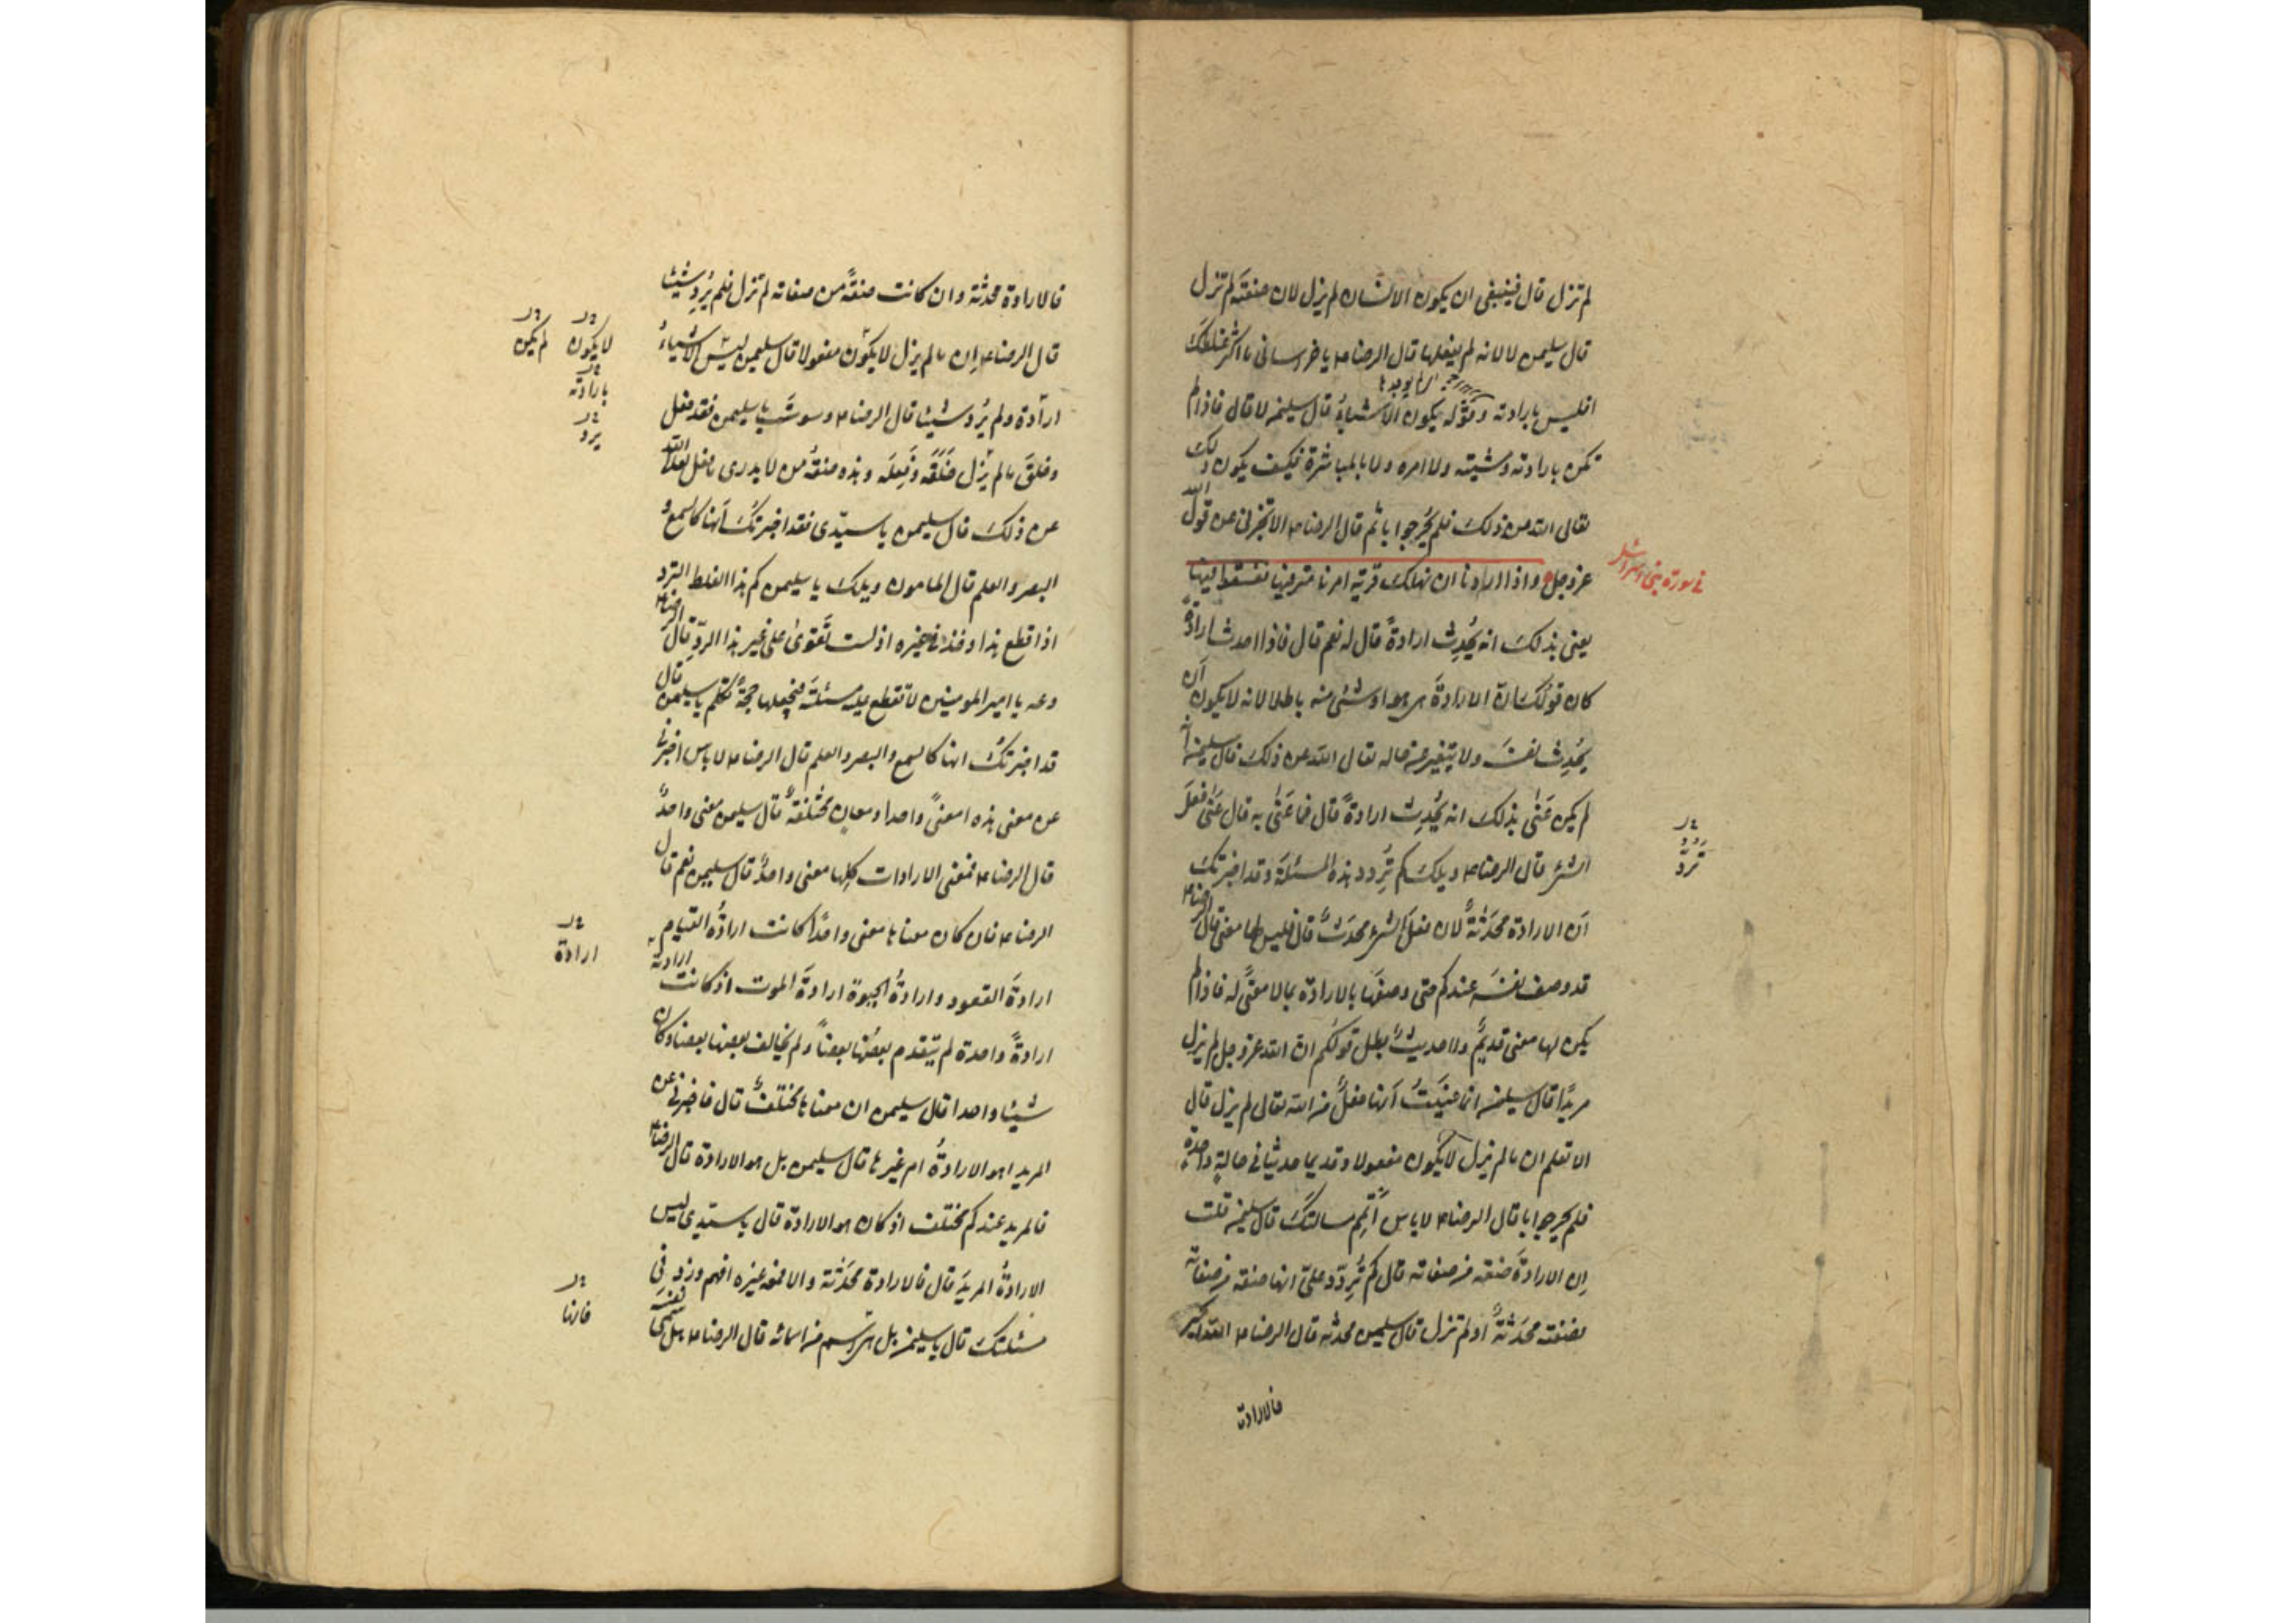 لم تزل قال فينبغى ان يكون الانسان لم يزل لان صفته لم تزل
قال سليمن لا لانه لم يفعلها قال الرضا ع يا خراسانى ما اكثر غلطك
افليس بارادته وقوله يكون الاشياءُ قال سليمن لا قال فاذا لم
تكن بارادته ومشيته ولا امره ولا بالمباشرة فكيف يكون ذلك
تعالى الله من ذلك فلم يحُر جوابا ثم قال الرضا ع الا تخبرنى عن قول الله
عز وجل واذا اردنا ان نهلك قرية امرنا مترفيها ففسقوا فيها
فى سورة بنى اسرائيل
يعنى بذلك انه يُحدِث ارادةً قال له نعم قال فاذا احدث ارادةً
كان قولك انّ الارادةَ هى هو او شئ منه باطلا لانه لا يكون اَن
يُحدِث نفسَه ولا يتغير عن حاله تعالى الله عن ذلك قال سليمن انه
لم يكن عَنٰى بذلك انه يُحدِث ارادةً قال فما عَنٰى به قال عَنٰى فعلَ
الشئ قال الرضا ع ويلك كم تُرِدد هذه المسئلةَ وقد اخبرتك
تردّ
اَن الارادة محدَثةٌ لان فعلَ الشئ محدَثٌ قال فليس لها معنى قال الرضا ع
قد وصف نفسَه عندكم حتى وصفها بالارادة بما لا معنًى له فاذا لم
يكن لها معنى قديمٌ ولا حديثٌ بطل قولكم انّ الله عز وجل لم يزل
مريدًا قال سليمن انما عنيتُ اَنها فعلٌ من الله تعالى لم يزل قال
الا تعلم ان ما لم يزل لا يكون مفعولا وقديما حديثا فى حالةٍ واحدة
فلم يحر جوابا قال الرضا ع لا باس اَتمِم مسالتكَ قال سليمن قلت
اِن الارادةَ صفة من صفاته قال كم تُرِدّد علىّ انها صفة من صفاته
فصفته محدَثةٌ او لم تزل قال سليمن محدثة قال الرضا ع الله اكبر
فالارادة
فالارادة محدثة وان كانت صفةً من صفاته لم تزل فلم يُرِد شيئا
قال الرضا ع اِن ما لم يزل لا يكون مفعولا قال سليمن ليس الاشياءُ
لا يكون
لم يكن
ارادة ولم يُرِد شيئا قال الرضا ع وسوستَ يا سليمن فقد فعل
بارادته
يرد
وخلقَ ما لم يزل خَلقَه وفِعلَه وهذه صفةُ من لا يدرى ما فعل تعالى الله
عن ذلك قال سليمن يا سيّدى فقد اخبرتُك اَنها كالسمع و
البصر والعلم قال المامون ويلك يا سليمن كم هذا الغلط والترد
اذا اقطع هذا وخذ فى غيره اذ لست تَقوىٰ على غير هذا الردّ قال الرضا ع
دعه يا امير المومنين لا تقطع عليه مسئلتَه فيجعلها حجةً تكلم يا سليمن قال
قد اخبرتكُ انها كالسمع والبصر والعلم قال الرضا ع لا باس اخبرنى
عن معنى هذه امعنًى واحدا ومعانٍ مختلفةٌ قال سليمن معنى واحدٌ
قال الرضا ع فمعنى الارادات كلِها معنى واحدٌ قال سليمن نعم قال
الرضا ع فان كان معناها معنى واحدًا كانت ارادةُ القيام
ارادة
ارادةَ القعود وارادةُ الحيوة ارادةَ الموت اذ كانت ارادته
ارادةً واحدة لم يتقدم بعضُها بعضاً ولم يخالف بعضها بعضا وكان
شيئا واحدا قال سليمن ان معناها مختلفٌ قال فاخبرنى عن
المريد اهو الارادةُ ام غيرها قال سليمن بل هو الارادة قال الرضا ع
فالمريد عندكم مختلف اذ كان هو الارادة قال يا سيّدى ليس
الارادةُ المريدَ قال فالارادة محدَثة والا فمعه غيره افهم وزد فى
مسئلتك قال يا سليمن بل هى اسم من اسمائه قال الرضا ع هل سمى نفسَه
فانها